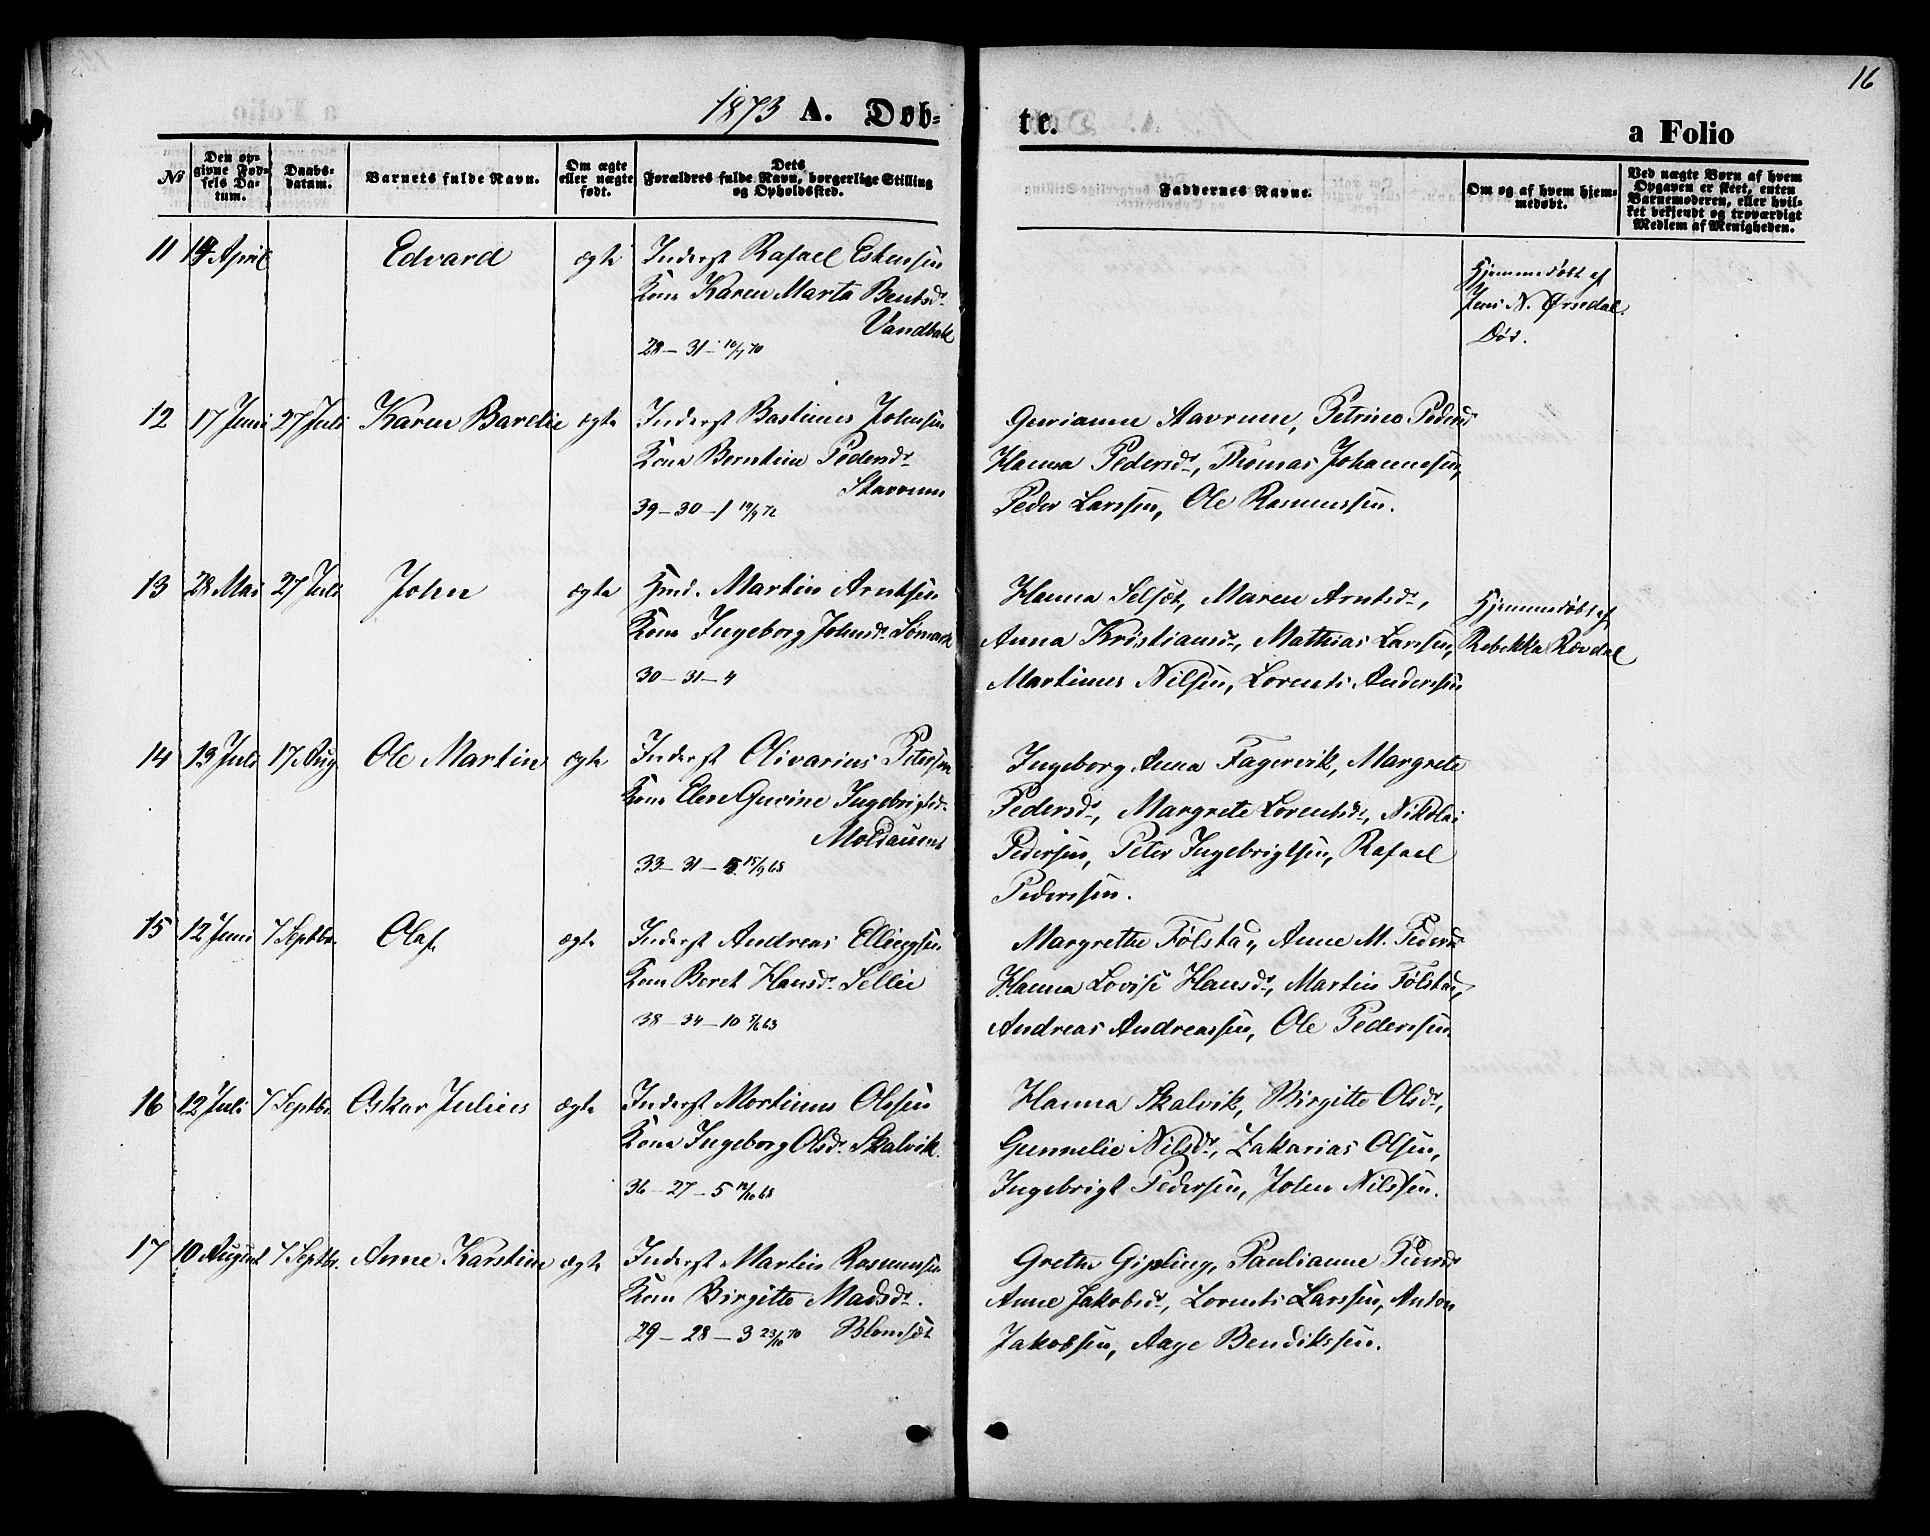 16
1873 A. Døb-
te.
a Folio
No
Den op-
givne Fød-
sels Da-
tum.
Daabs-
datum.
Barnets fulde Navn.
Om ægte
eller uægte
født.
Dets
Forældres fulde Navn, borgerlige Stilling
og Opholdssted.
Faddernes Navne.
Om og af hvem hjem-
medøbt.
Ved uægte Børn af hvem
Opgaven er skeet, enten
Barnemoderen, eller hvil-
ket bekjendt og troværdigt
Medlem af Menigheden.
11 April Edvard ægte Inderst Rafael Eskensen
Kone Karen Marta Bentsdr.
Vandbak
28 – 31 – 70
Hjemmedøbt af
Jens N. Ørsedal.
Død.
12 17 Juni 27 Juli Karen Barelie ægte Inderst Bastinus Johnsen
Kone Berntine Pedersdr.
39 – 30 – 1 72
Gurianne Aavrune, Petrine Pedersd
Hanna Pedersdr., Thomas Johannesen,
Peder Larssen, Ole Rasmussen.
13 28 Mai 27 Juli John ægte Hmd. Martin Arntsen
Kone Ingeborg Johnsdr.
30 – 31 – 4
Hanna Selsæt, Maren Arntsdr.,
Anna Kristiansdr., Mathias Larssen,
Martinus Nilsen, Lorents Anderssen
Hjemmedøbt af
Rebekka Rævdal
14 13 Juli 17 Aug. Ole Martin ægte Inderst Olivarius Petersen
Kone Elen Gurine Ingebrigtsdr.
Moldauens
33 – 31 – 5 15/9 68
Ingeborg Anna Fagervik, Margrete
Pedersdr., Margrete Lorentsdr., Nikolai
Pedersen, Peter Ingebrigtsen, Rafael
Pederssen.
15 12 Juni 7 Septbr. Olaf ægte Inderst Andreas Ellingsen
Kone Beret Hansdr. Sellie
38 – 34 – 10 63
Margrethe Følstad, Anne M. Pedersd
Hanna Lovise Hansdr., Martin Følstad,
Andreas Andreassen, Ole Pederssen.
16 12 Juli 7 Septbr. Oskar Julius ægte Inderst Mortinus Olssen
Kone Ingeborg Olsdr. Skalvik.
36 – 27 – 5 68
Hanna Skalvik, Birgitte Olsdr.,
Gunnelie Nilsdr., Zakarias Olsen,
Ingebrigt Pedersen, John Nilssen.
17 10 August 7 Septbr. Anne Karstine ægte Inderst Martin Rasmussen
Kone Birgitte Madsdr.
29 – 28 – 3 23/10 70 Blomsæt
Grethe Gipling, Paulianne Pedersd
Anne Jakobsdr., Lorents Larssen, Anton
Jakobsen, Aage Bendikssen.